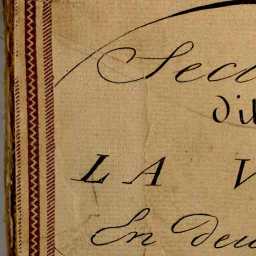 Sec
di
LA V
En deu